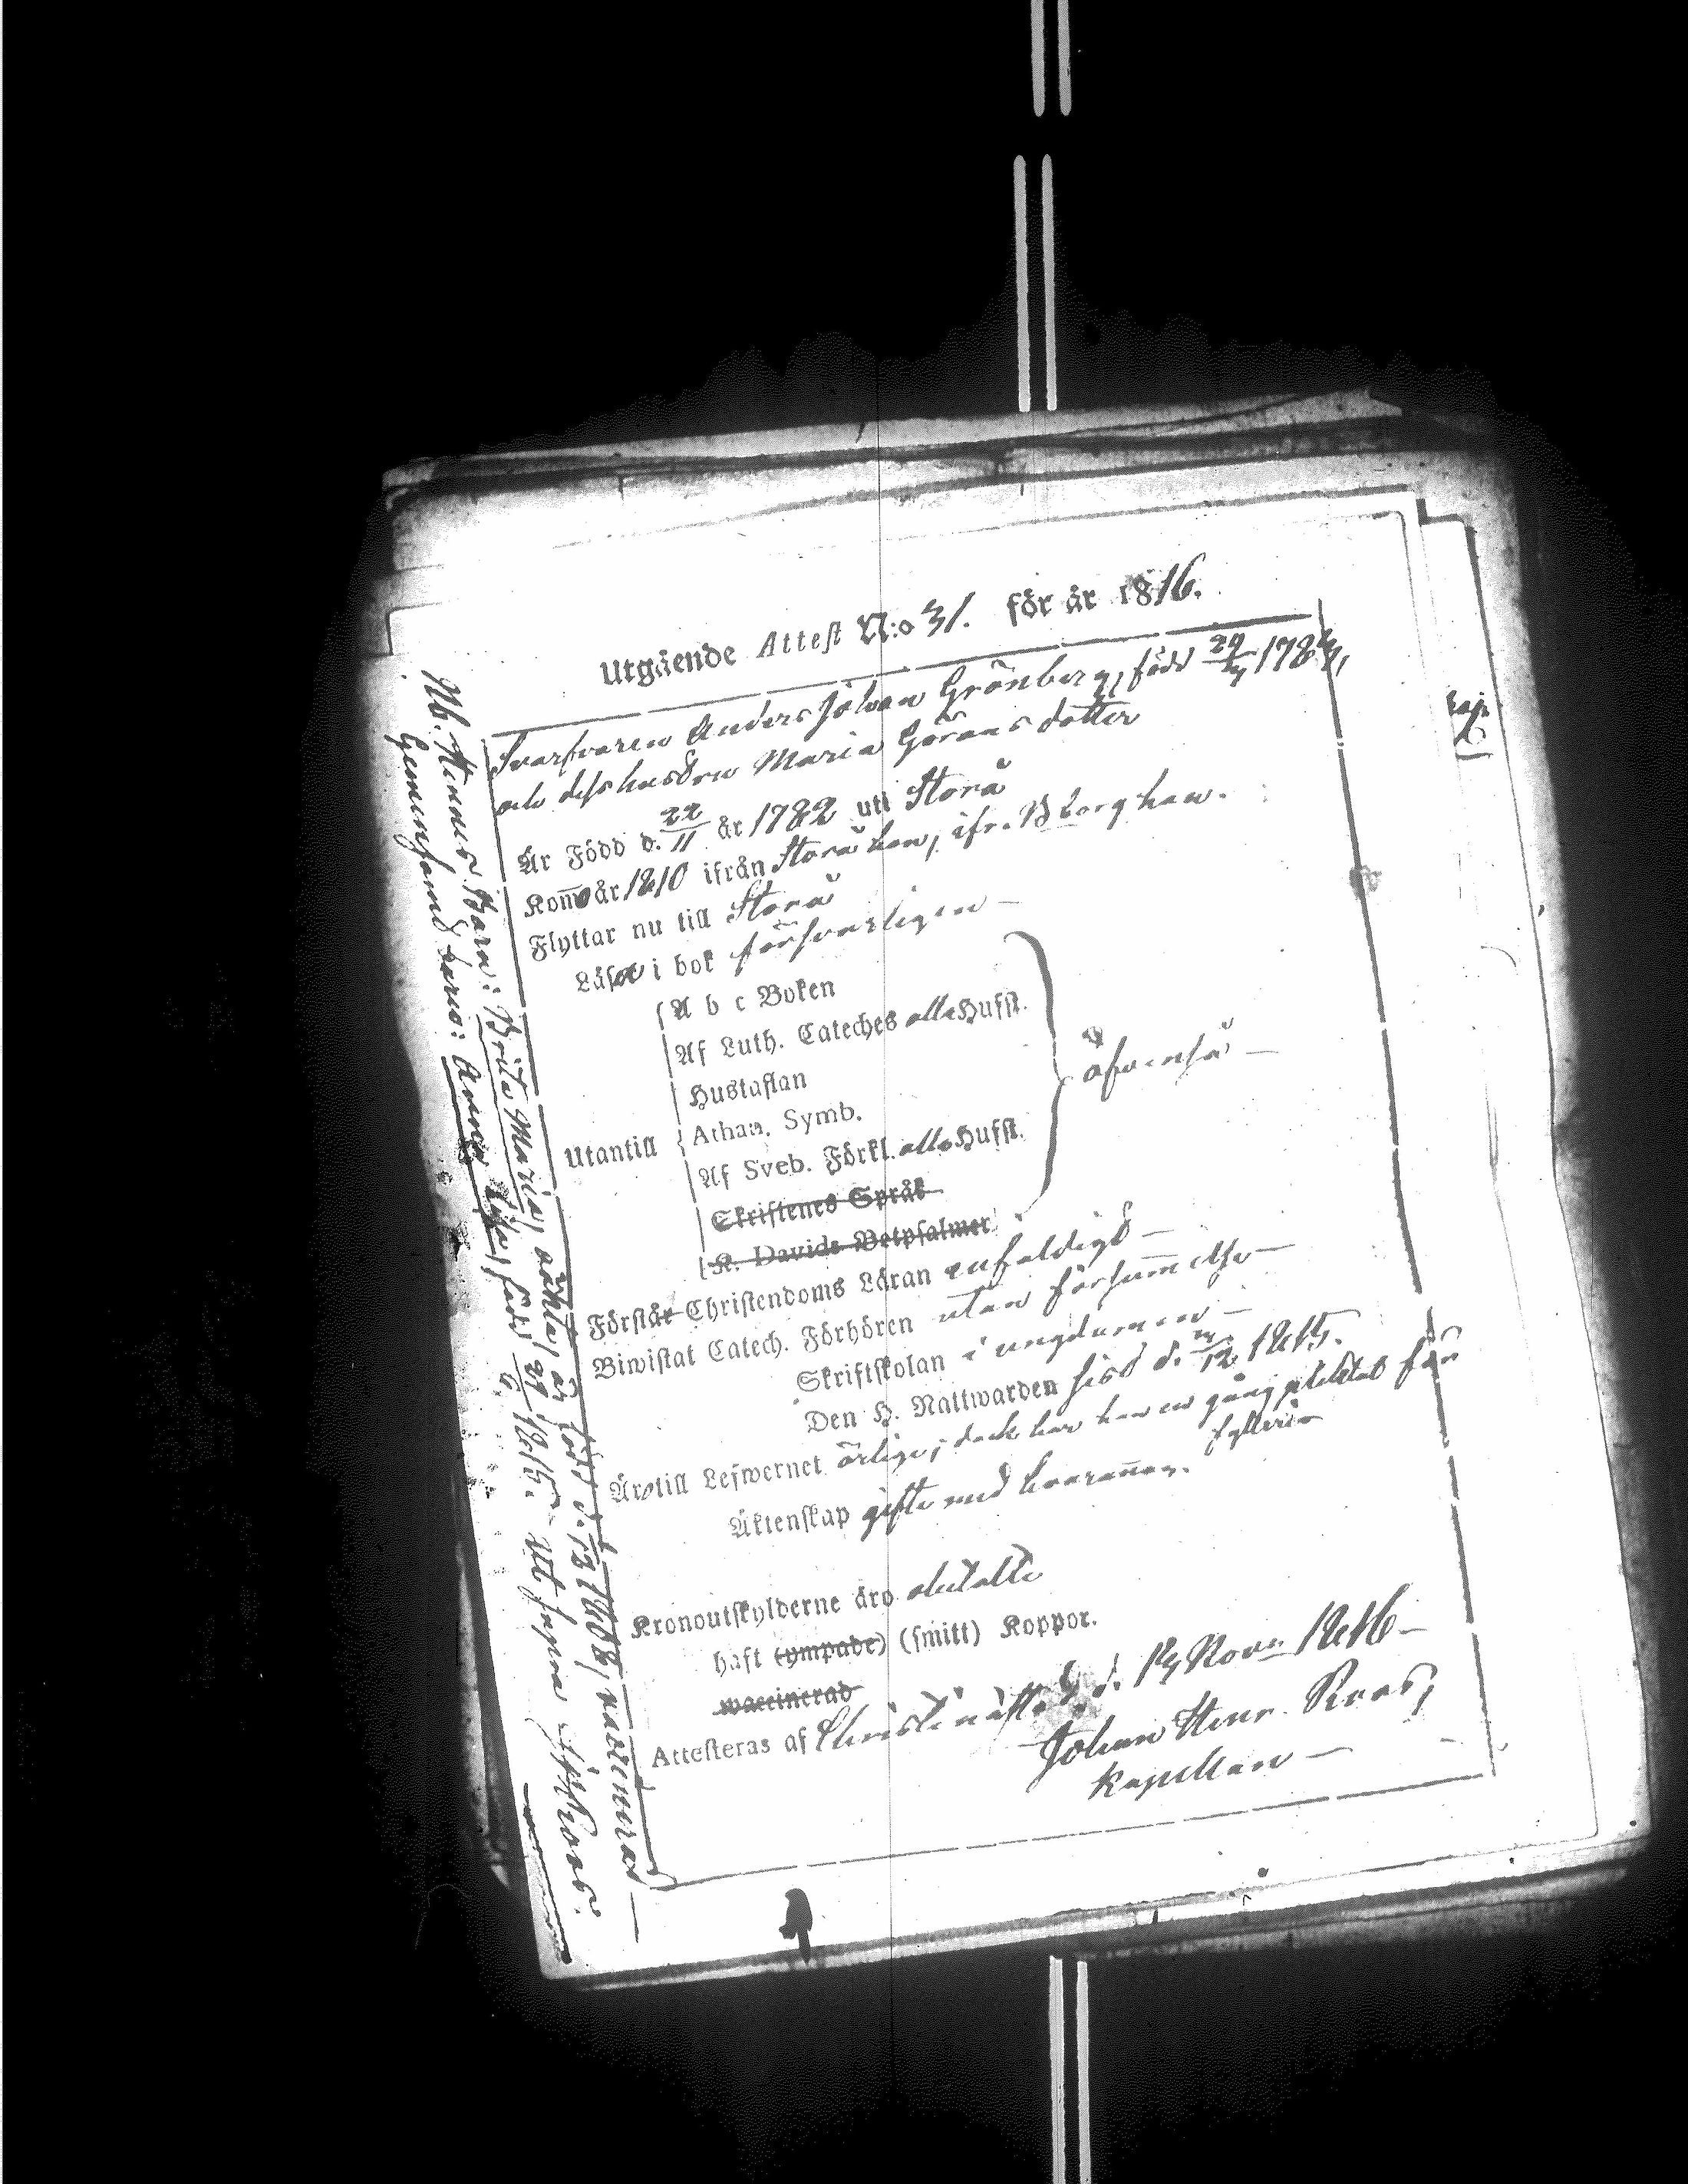 Utgående Attest N:o 31. för år 1816.
Svarfvaren Anders Johan Grönberg, född 29/4 1784,
och dess hustru Maria Görans dotter
Är Född d. 22/11 år 1782 uti Storå
Kom̄o år 1810 ifrån Storå han, ifr. Uborg hon.
Flyttar nu till Storå
Läsa i bok försvarligen —
A b c Boken
Af Luth. Cateches alla Hufst.
Hustaflan
Athan. Symb.
Utantill
Af Sveb. Förkl. alla Hufst.
äfvenså —
Skriftenes Språk
K. Davids Botpsalmer
Förstår Christendoms Läran enfaldigt —
Biwistat Catech. Förhören utan försum̄else —
Skriftskolan i ungdomen —
Den H. Nattwarden sist d. /12 1815.
Äro till Lefwernet ärlige; dock har han en gång pliktat för
fylleri
Äktenskap gifte med hvaran̄an.
Kronoutskylderne äro betalte
haft (ympade) (smitt) Koppor.
waccinerad
Attesteras af Christinæstad d. 14 Nov. 1816 —
Johan Henr. Roos,
Kapellan —
Nb. Hennes Barn: Brita Maria, oäkta, är född d. 1808, vaccinerad —
Gemensamt barn: Anna Lisa, född 29/6 1815. Ut supra JHRoos.